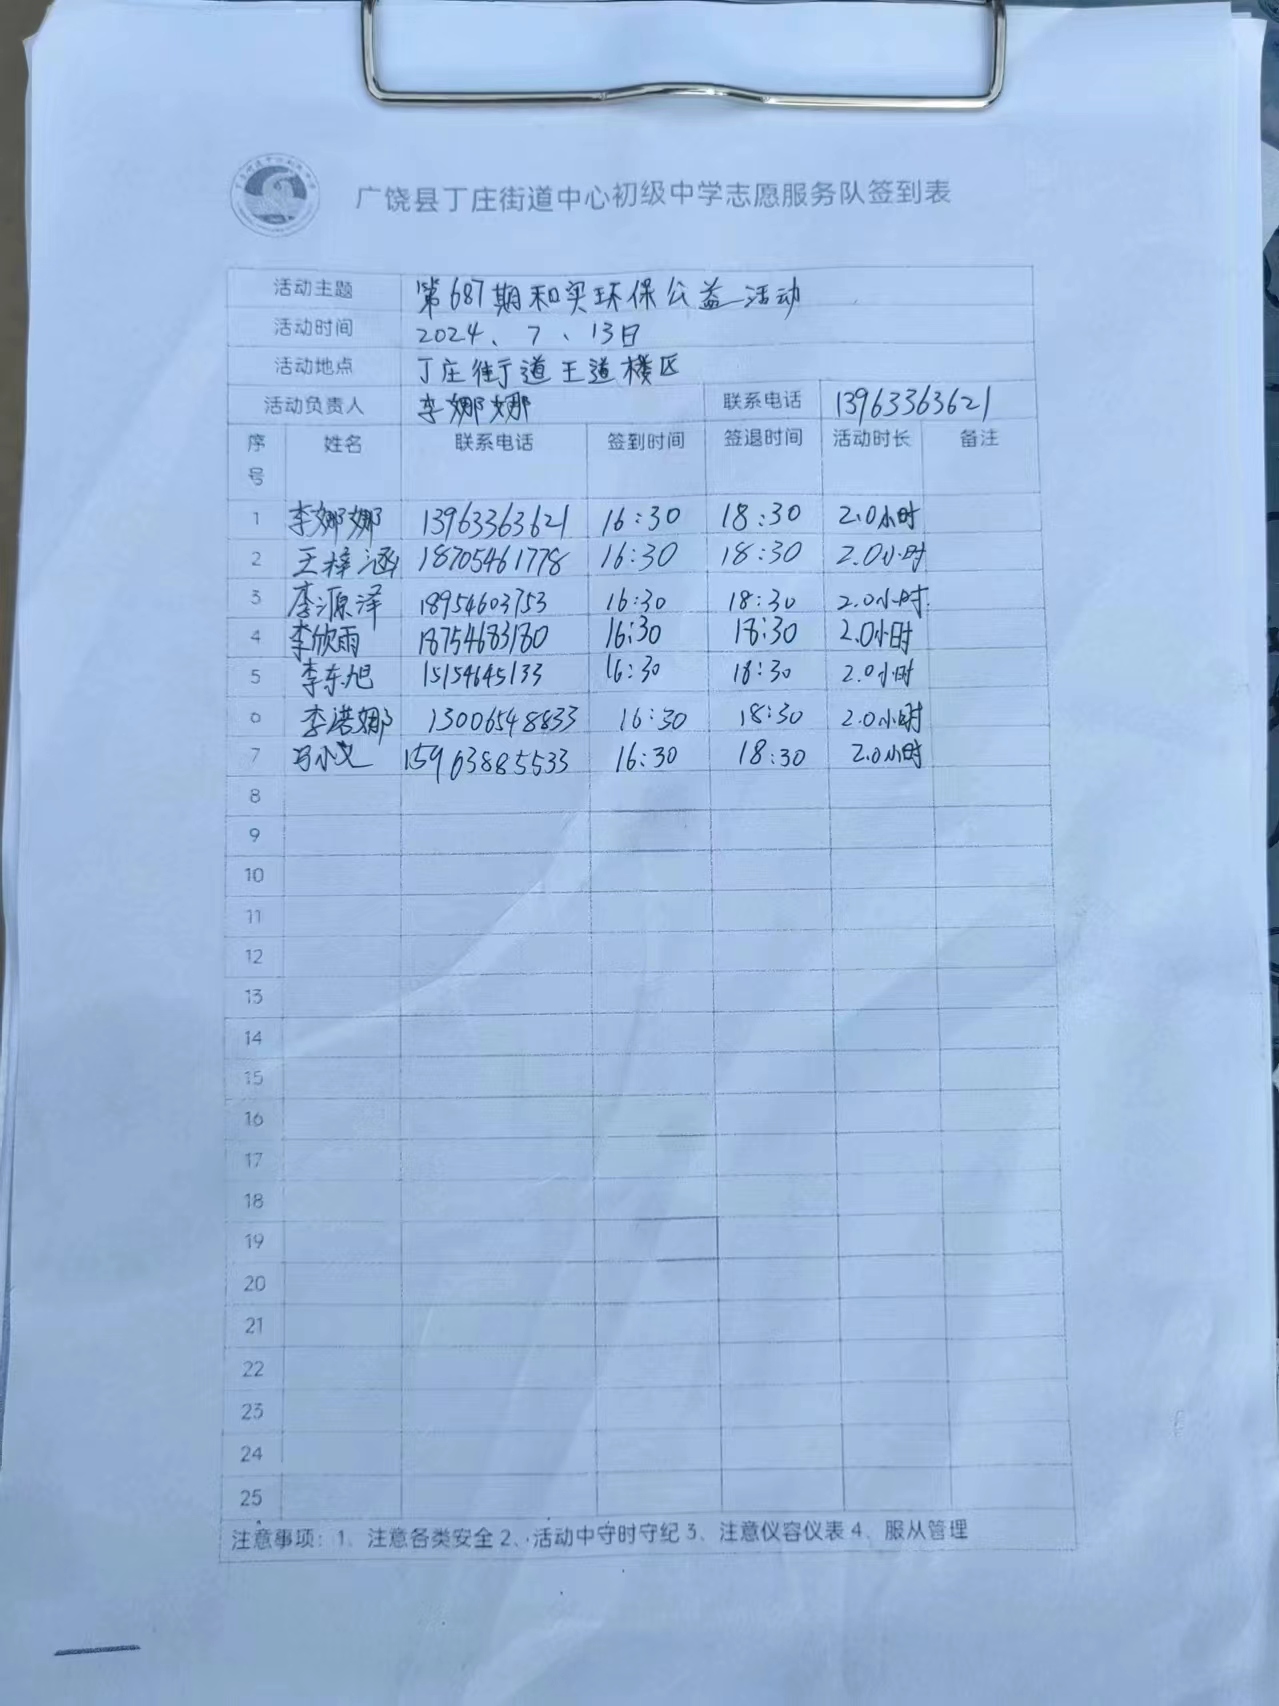 广饶县丁庄街道中心初级中学志愿服务队签到表
活动主题 第687期和美环保公益活动
活动时间 2024、7、13日
活动地点 丁庄街道王道楼区
活动负责人 李娜娜 联系电话 13963363621
序号 姓名 联系电话 签到时间 签退时间 活动时长 备注
1 李娜娜 13963363621 16:30 18:30 2.0小时
2 王梓涵 18705461778 16:30 18:30 2.0小时
3 李源泽 18954603753 16:30 18:30 2.0小时.
4 李欣雨 18754683180 16:30 18:30 2.0小时
5 李东旭 15154645133 16:30 18:30 2.0小时
6 李诺娜 13006548833 16:30 18:30 2.0小时
7 马小义 15963885533 16:30 18:30 2.0小时
8
9
10
11
12
13
14
15
16
17
18
19
20
21
22
23
24
25
注意事项：1、注意各类安全 2、活动中守时守纪 3、注意仪容仪表 4、服从管理